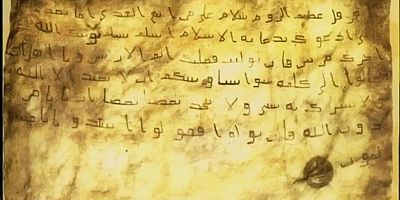 هرقل عظيم الروم سلام على من اتبع الهدى اما بعد
ادعوك بدعاية الاسلام اسلم تسلم يوتك الله
اجرك مرتين فان توليت فعليك اثم الاريسين ويا اهل
تعالوا الى كلمة سوا بيننا وبينكم الا نعبد الا الله
ولا نشرك به شي ولا يتخذ بعضنا بعضا اربابا من
دون الله فان تولوا فقولوا اشهدوا بانا مس
لمون